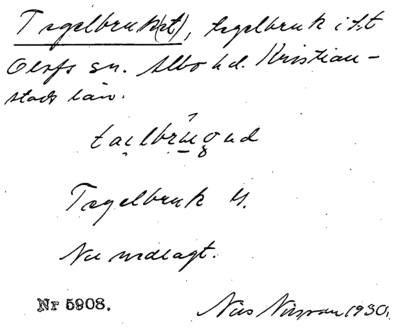 Tegelbruk(et), tegelbruk i S:t
Olofs sn. Albo hd. Kristian-
stads län.
Tegelbruk n.
Nu nedlagt.
Nr 5908.
Nils Nilsson 1930.